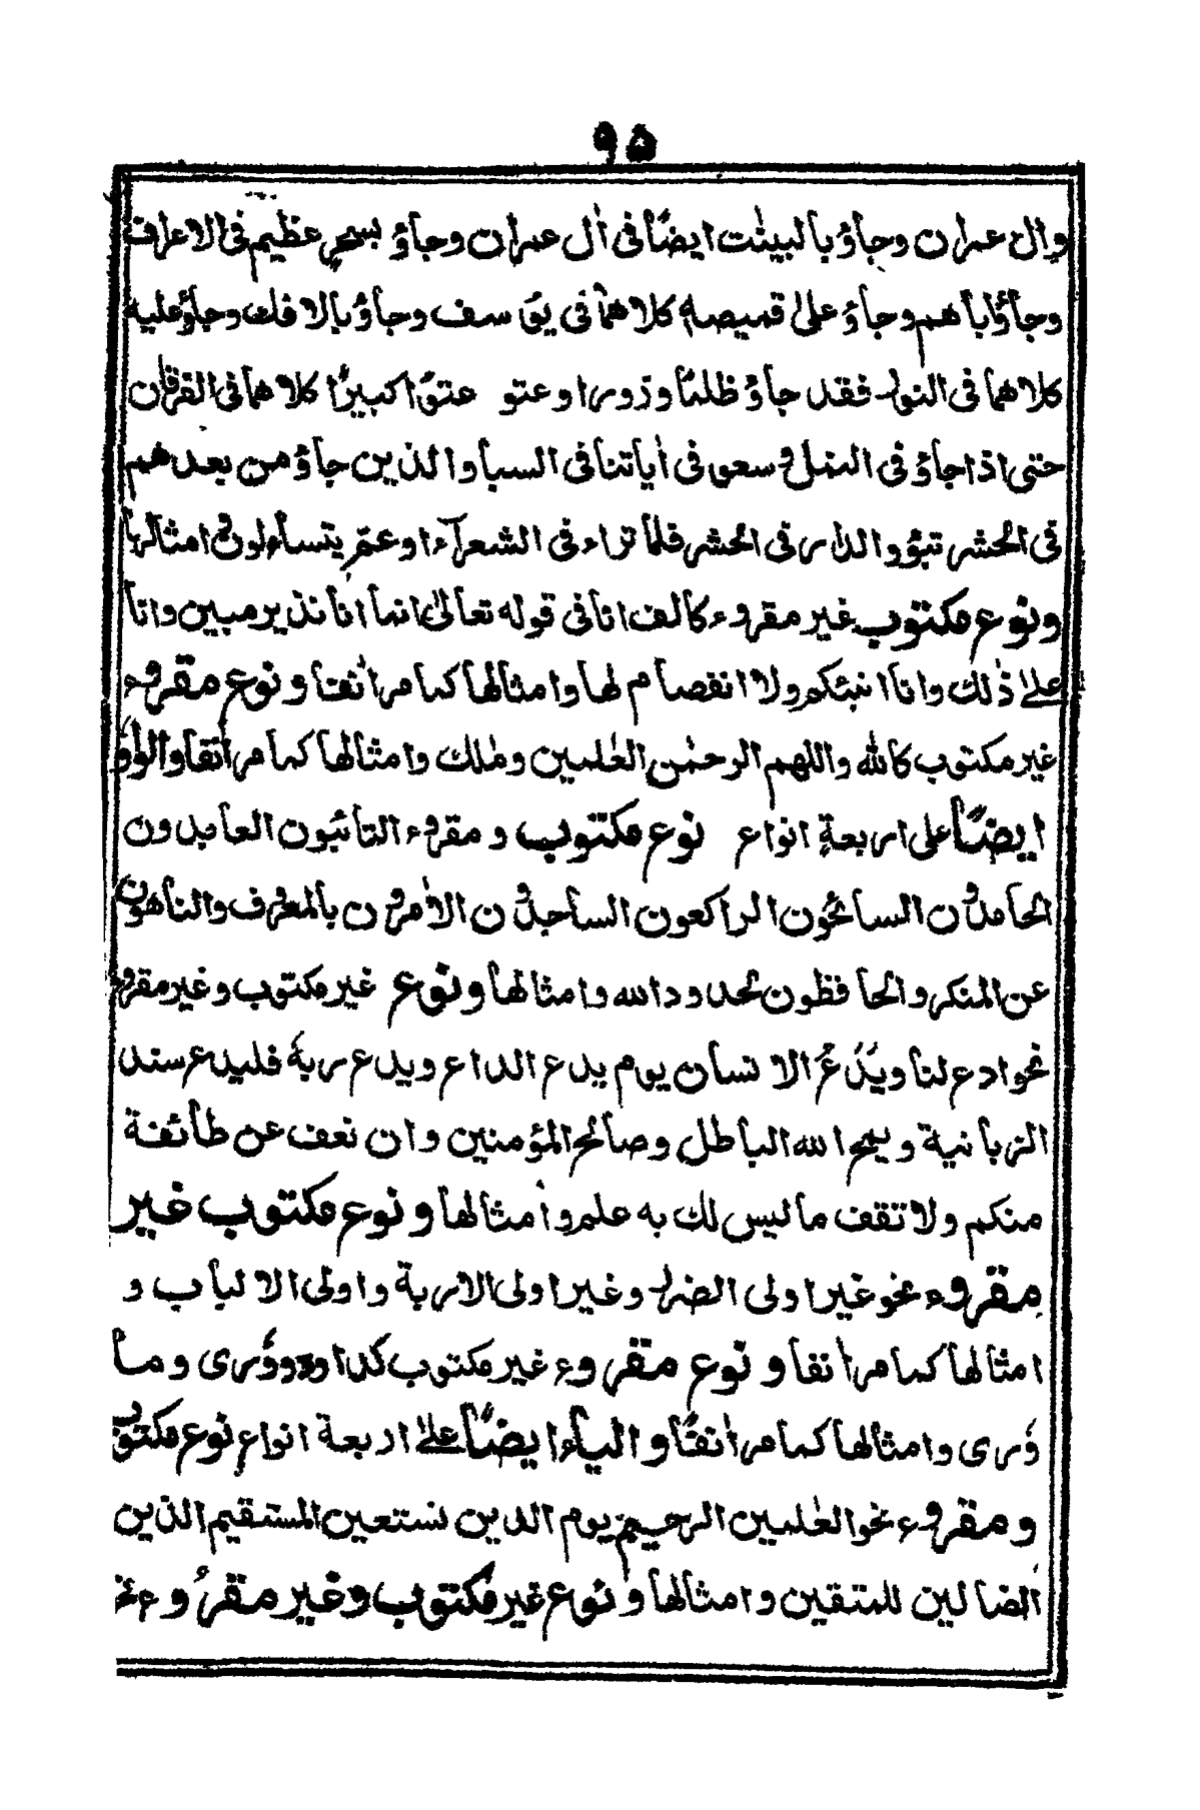 ٩٥
وال عمران وجاؤ بالبينٰت ايضًا فى اٰل عمران وجاؤ بسحر عظيم فى الاعراف
وجاؤ اباهم وجاؤ على قميصه كلاهما فى يوسف وجاؤ بالافك وجاؤ عليه
كلاهما فى النور فقد جاؤ ظلمًا وزورا وعتو عتوًا كبيرًا كلاهما فى الفرقان
حتى اذا جاؤ فى النمل وسعو فى اٰياتنا فى السبأ والذين جاؤ من بعدهم
فى الحشر تبؤو الدار فى الحشر فلما تراء فى الشعرآء وعمّ يتساءلون وامثالها
ونوع مكتوب غير مقروء كالف انا فى قوله تعالىٰ انما انا نذير مبين وانا
علىٰ ذٰلك وانا انبئكم ولا انفصام لها وامثالها كما مر اٰنفا ونوع مقروء
غير مكتوب كالله واللهم الرحمٰن العٰلمين ومٰلك وامثالها كما مر اٰنفا والواو
ايضًا على اربعة انواع نوع مكتوب و مقروء التائبون العابدون
الحامدون السائحون الراكعون الساجدون الاٰمرون بالمعروف والناهون
عن المنكر والحافظون لحدود الله وامثالها ونوع غير مكتوب وغير مقروء
نحو ادع لنا ويَدْعُ الانسان يوم يدع الداع ويدع ربه فليدع سندع
الزبانية ويمح الله الباطل وصالح المؤمنين وان نعف عن طائفة
منكم ولا تقف ما ليس لك به علم وامثالها ونوع مكتوب غير
مقروء نحو غير اولى الضرر وغير اولى الاربة واولى الالباب و
امثالها كما مر اٰنفا ونوع مقروء غير مكتوب كداود وؤرى وما
وٗرى وامثالها كما مر اٰنفًا والياء ايضًا علىٰ اربعة انواع نوع مكتوب
ومقروء نحو العٰلمين الرحيم يوم الدين نستعين المستقيم الذين
الضالين للمتقين وامثالها ونوع غير مكتوب وغير مقروء نحو